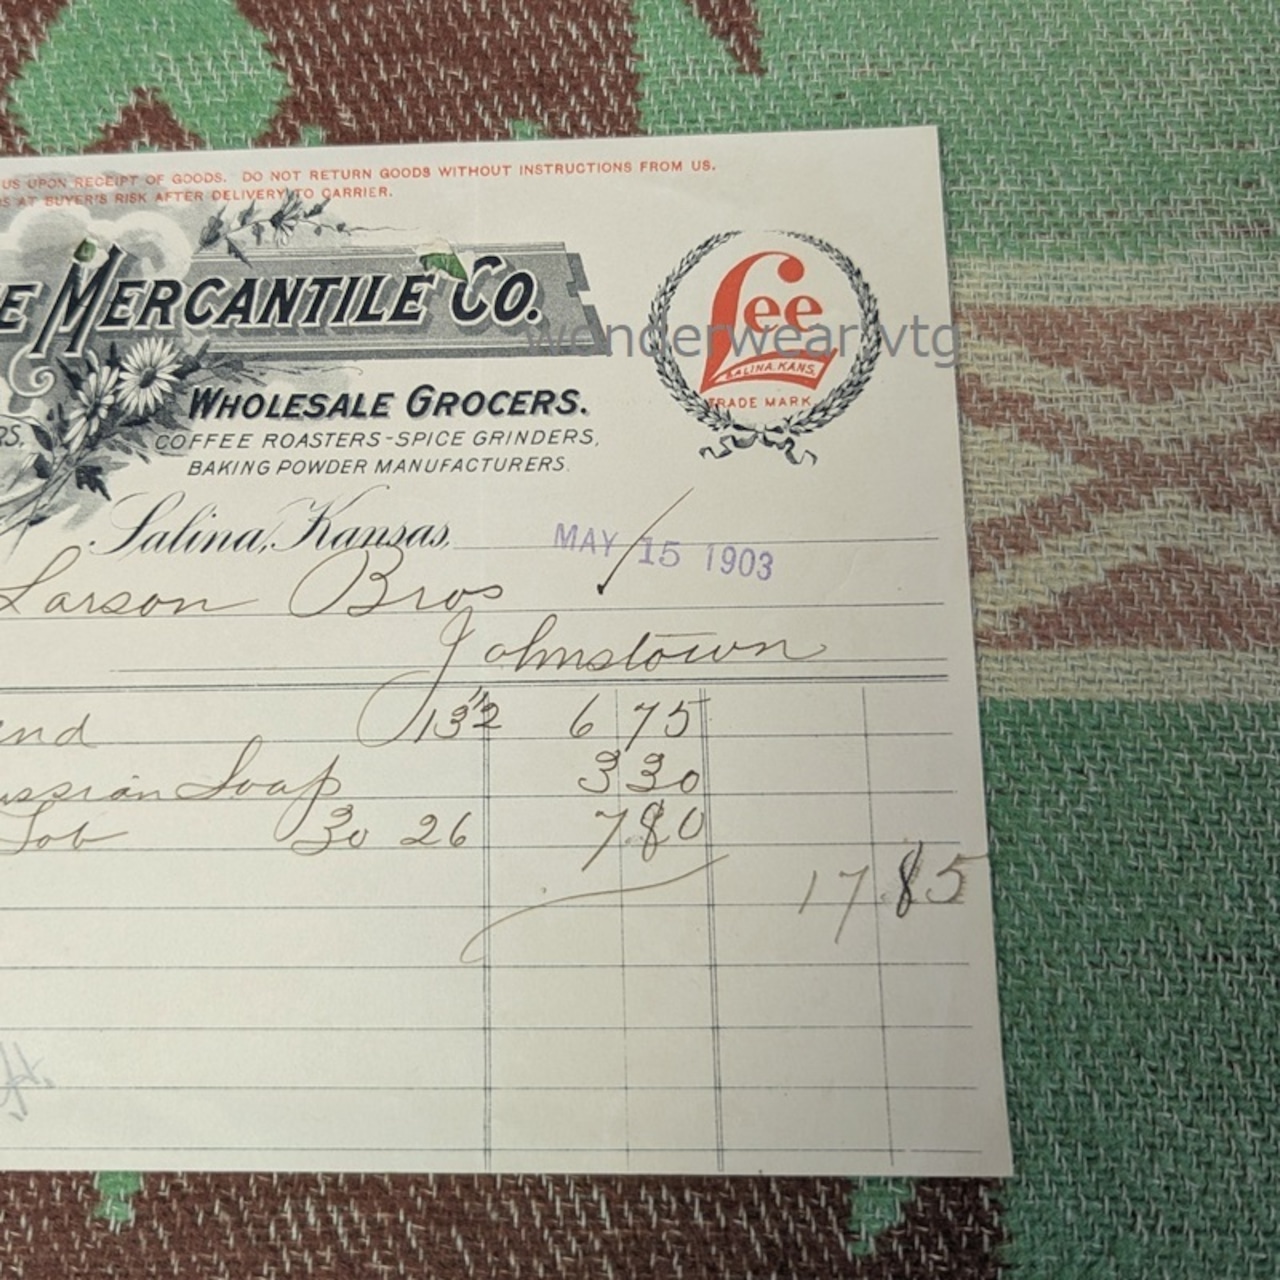 US UPON RECEIPT OF GOODS. DO NOT RETURN GOODS WITHOUT INSTRUCTIONS FROM US.
AT BUYER'S RISK AFTER DELIVERY TO CARRIER.
E MERCANTILE CO.
Lee
SALINA, KANS.
TRADE MARK
wonderwear vtg
WHOLESALE GROCERS.
RS,
COFFEE ROASTERS-SPICE GRINDERS,
BAKING POWDER MANUFACTURERS.
Salina, Kansas, MAY 15 1903
Larson Bros
Johnstown
13 1/2 6 75
ussian Soap 3 30
30 26 7 80
17.85